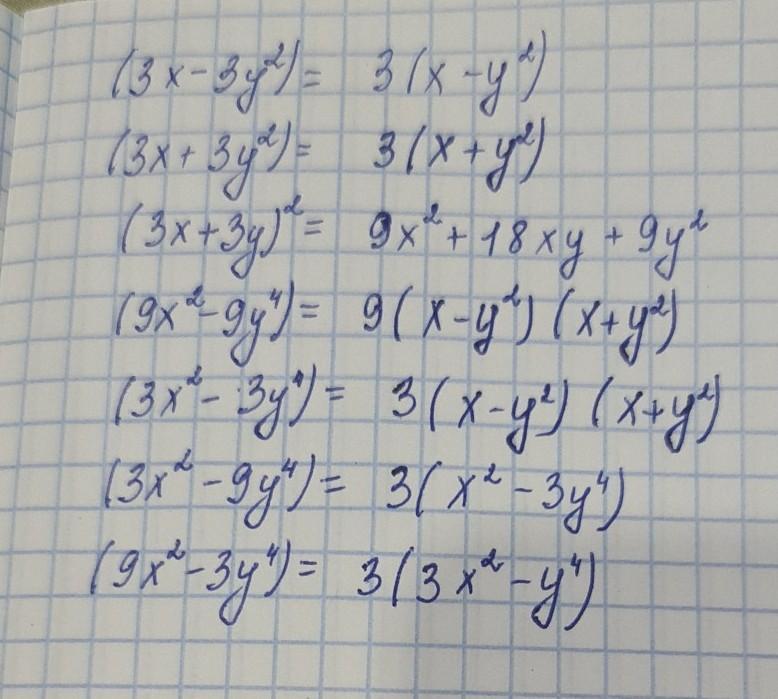 (3x-3y²)= 3(x-y²)
(3x+3y²)= 3(x+y²)
(3x+3y)²= 9x²+18xy+9y²
(9x²-9y⁴)= 9(x-y²)(x+y²)
(3x²-3y⁴)= 3(x-y²)(x+y²)
(3x²-9y⁴)= 3(x²-3y⁴)
(9x²-3y⁴)= 3(3x²-y⁴)